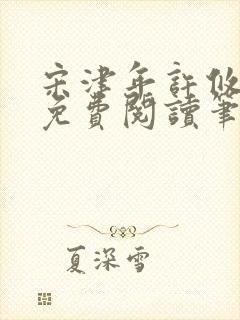 宋津年許攸
免費閱讀筆
夏深雪